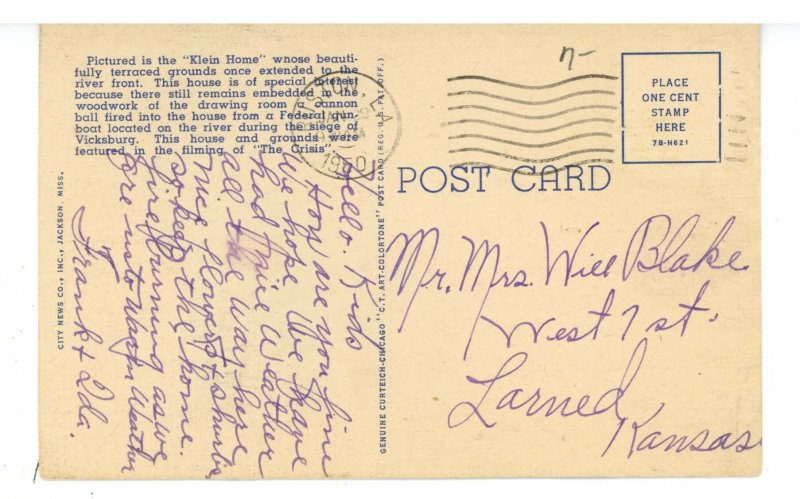 Pictured is the "Klein Home" whose beauti-
fully terraced grounds once extended to the
river front. This house is of special interest
because there still remains embedded in the
woodwork of the drawing room a cannon
ball fired into the house from a Federal gun-
boat located on the river during the siege of
Vicksburg. This house and grounds were
featured in the filming of "The Crisis".
Hello. Kids
How are you fine
we hope. We have
had nice Weather
all the way here
nice flowers &
the home.
fire burning as we
are us to Warm Weather
Frank & Ida.
CITY NEWS CO., INC., JACKSON, MISS.
GENUINE CURTEICH-CHICAGO "C.T. ART-COLORTONE" POST CARD (REG. U.S. PAT. OFF.)
1950
7-
PLACE
ONE CENT
STAMP
HERE
7B-H621
POST CARD
Mr. Mrs. Will Blake
West 7 st.
Larned,
Kansas